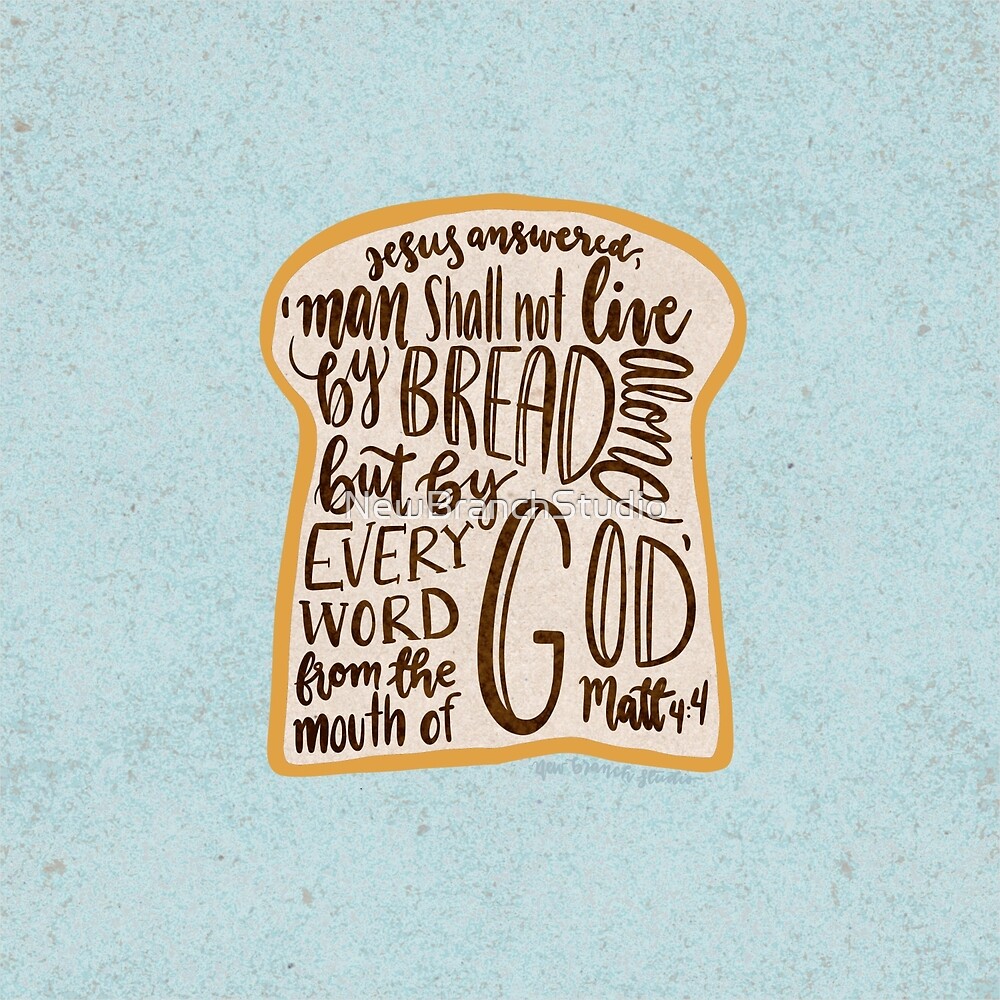 Jesus answered,
'man Shall not live
by BREAD alone,
but by
NewBranchStudio
EVERY
WORD
from the
mouth of
GOD'
Matt 4:4
new branch studio